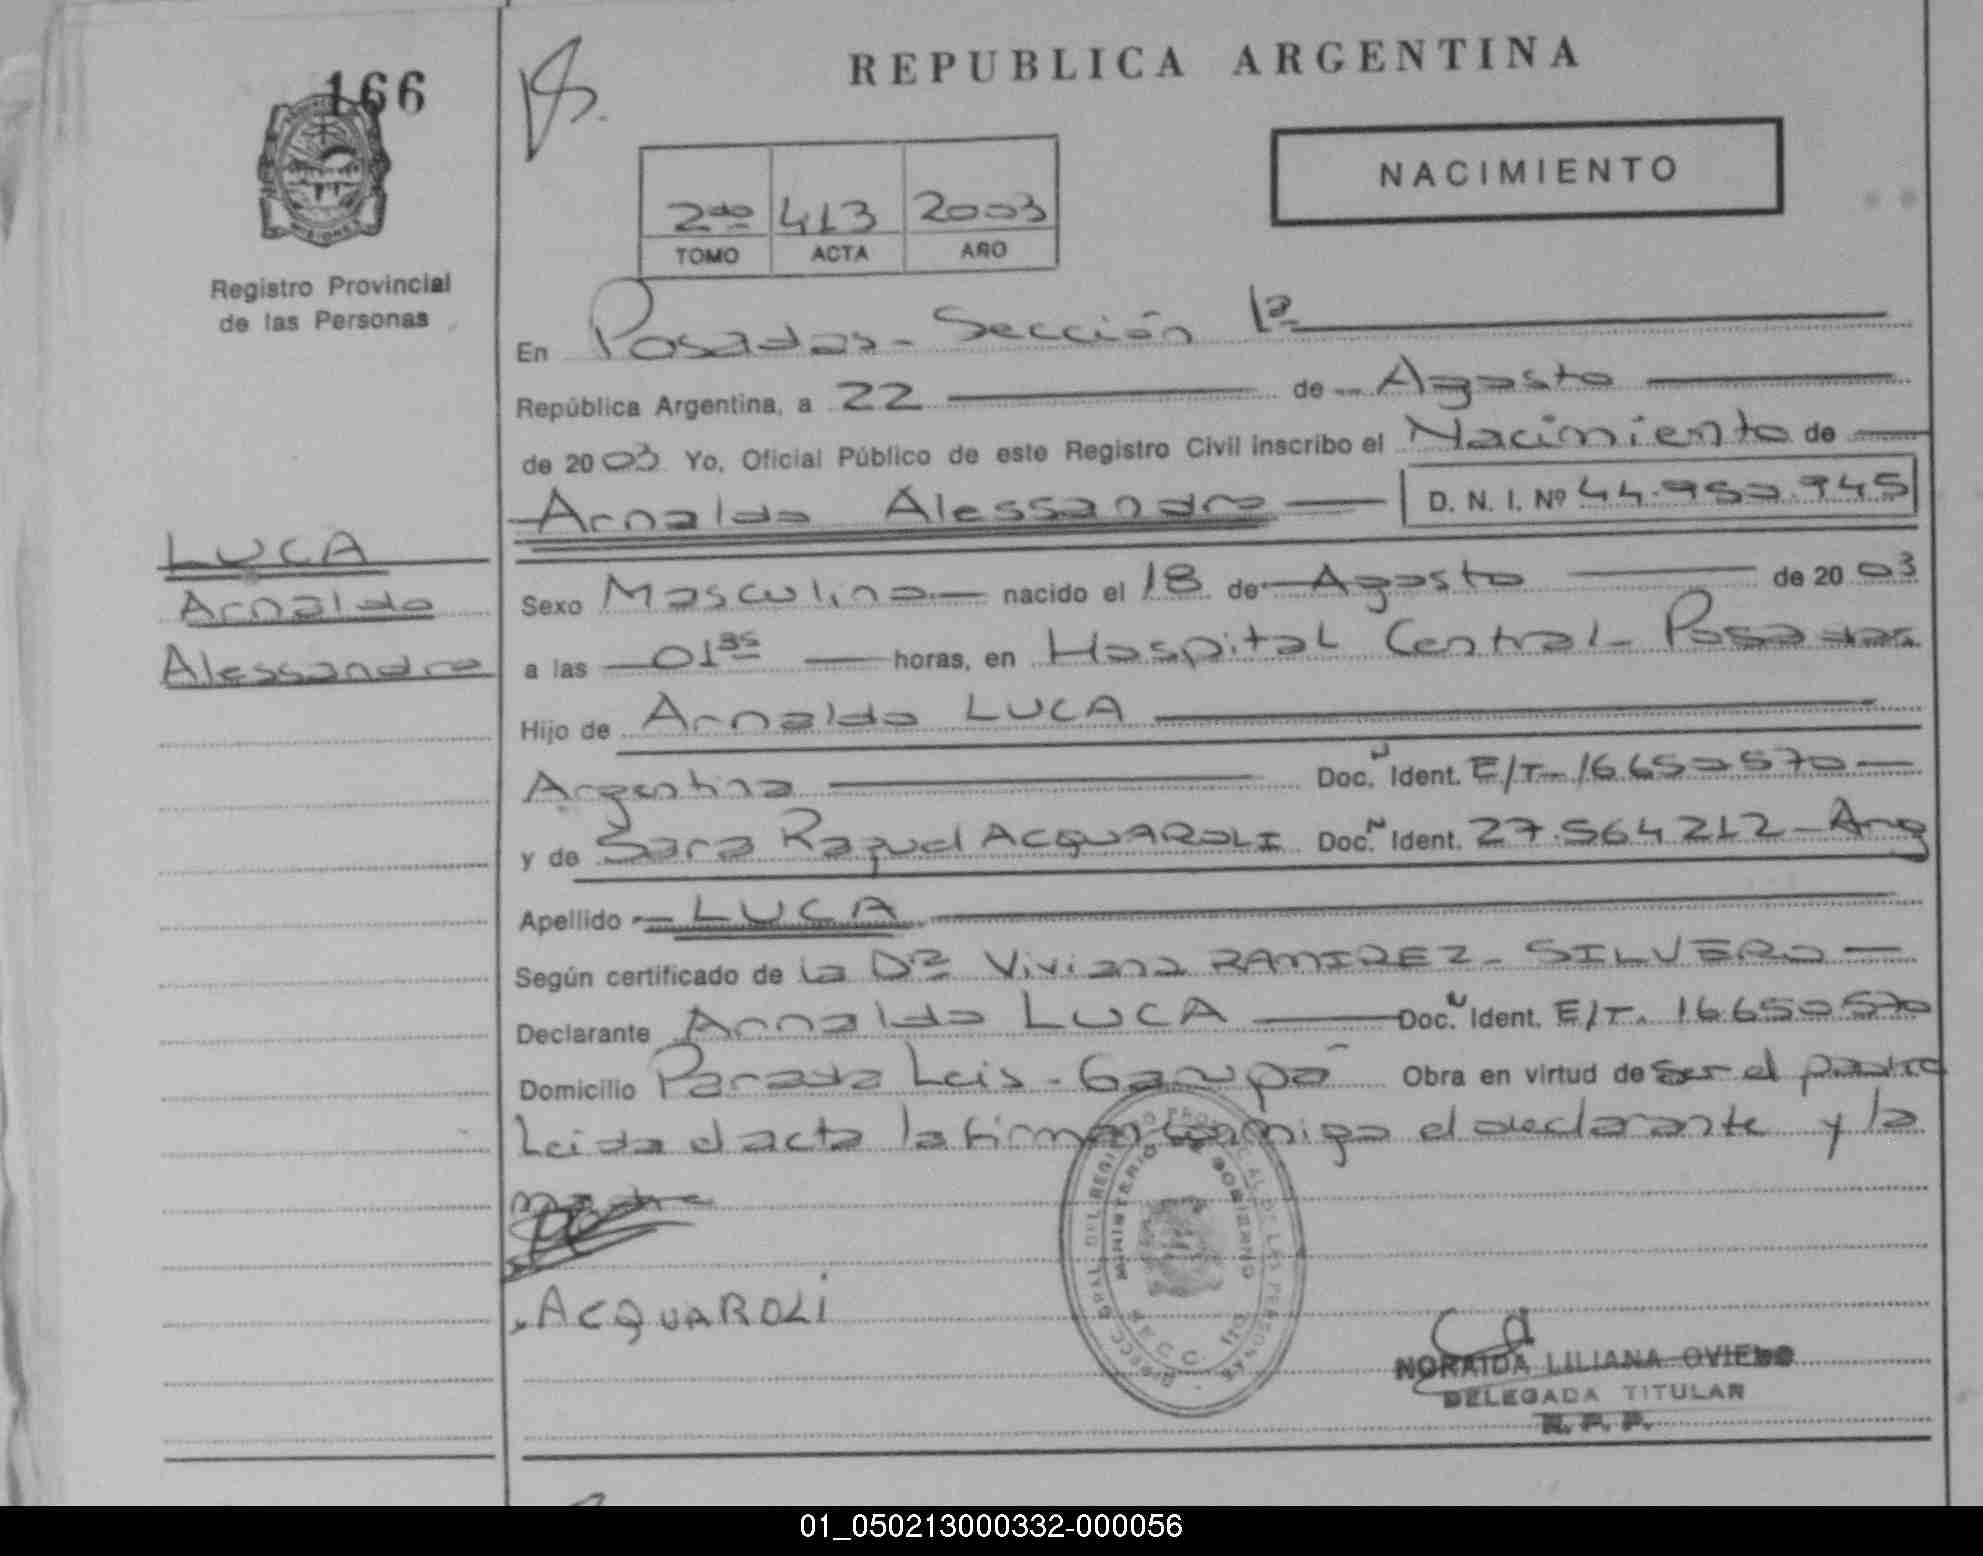 166
REPUBLICA ARGENTINA
NACIMIENTO
2do 413 2003
TOMO ACTA AÑO
MISIONES
Registro Provincial
de las Personas
En Posadas - Sección 1a
República Argentina, a 22 de Agosto
de 2003 Yo, Oficial Público de este Registro Civil inscribo el Nacimiento de
Arnaldo Alessandro D. N. I. Nº 44.950.945
LUCA
Arnaldo
Alessandro
Sexo Masculino nacido el 18 de Agosto de 2003
a las 0135 horas, en Hospital Central - Posadas
Hijo de Arnaldo LUCA
Argentina Doc. Ident. E/T- 16650570
y de Sara Raquel ACQUAROLI Doc. Ident. 27.564212 - Arg
Apellido - LUCA
Según certificado de la Dra Viviana RAMIREZ - SILVERO
Declarante Arnaldo LUCA Doc. Ident. E/T. 16650570
Domicilio Parada Leis - Garupá Obra en virtud de ser el padre
Leida el acta la firman conmigo el declarante y la
madre
ACQUAROLI
MINISTERIO DE GOBIERNO
NORAIDA LILIANA OVIEDO
DELEGADA TITULAR
R. P. P.
01_050213000332-000056